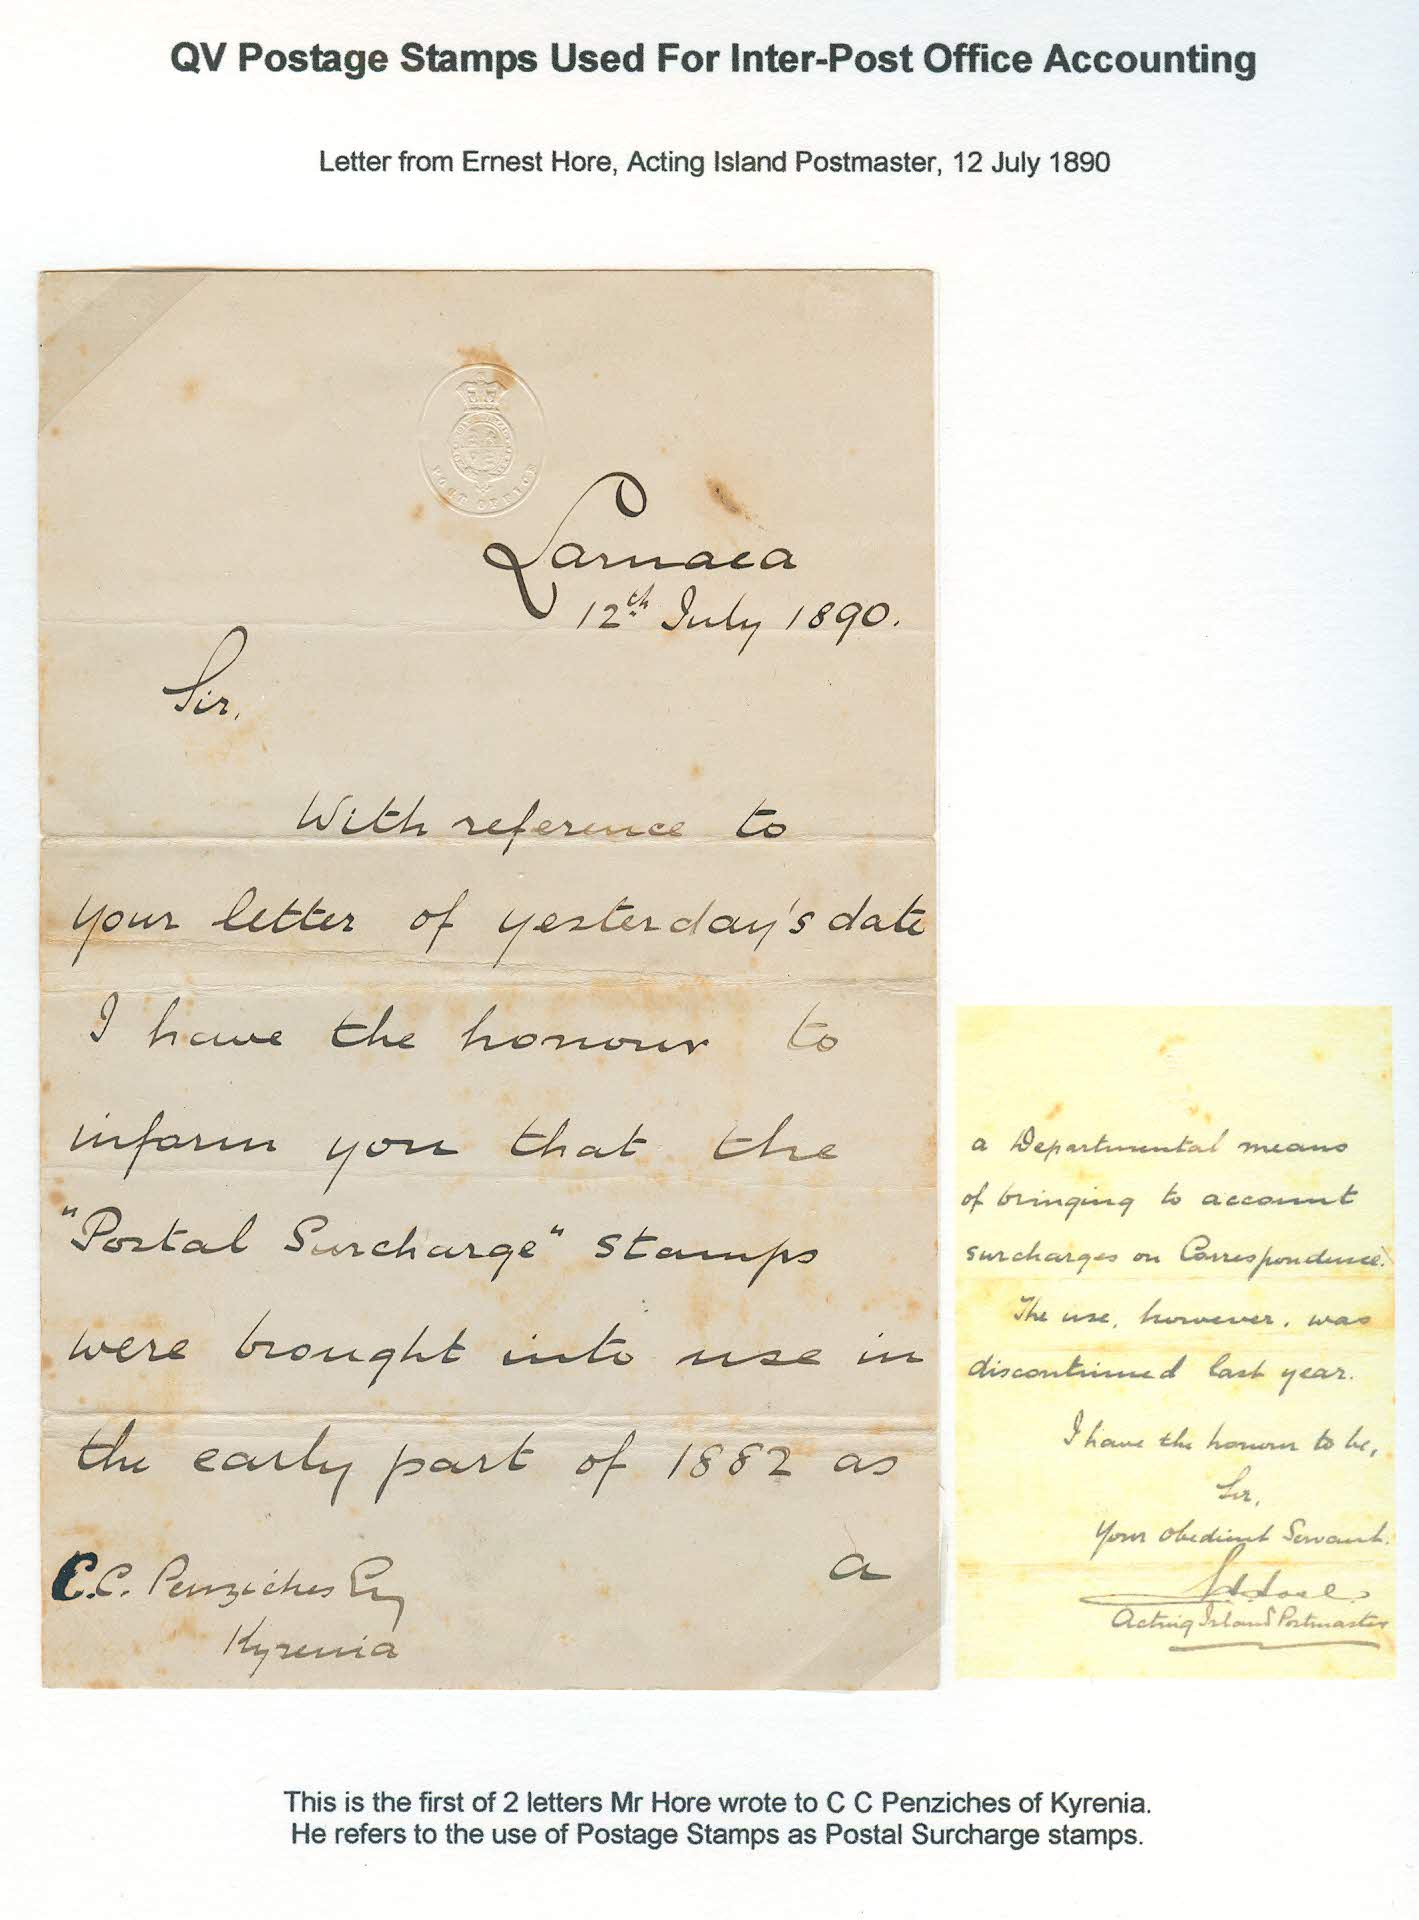 QV Postage Stamps Used For Inter-Post Office Accounting
Letter from Ernest Hore, Acting Island Postmaster, 12 July 1890
POST OFFICE
Larnaca
12th July 1890.
Sir,
With reference to
your letter of yesterday's date
I have the honour to
inform you that the
"Postal Surcharge" stamps
were brought into use in
the early part of 1882 as
a
C.C. Penziches Esq
Kyrenia
a Departmental means
of bringing to account
surcharges on Correspondence.
The use, however, was
discontinued last year.
I have the honour to be,
Sir,
Your Obedient Servant.
Hore
Acting Island Postmaster
This is the first of 2 letters Mr Hore wrote to C C Penziches of Kyrenia.
He refers to the use of Postage Stamps as Postal Surcharge stamps.